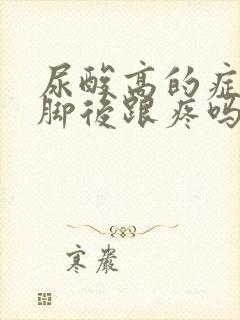 尿酸高的症
脚后跟疼吗
寒岩